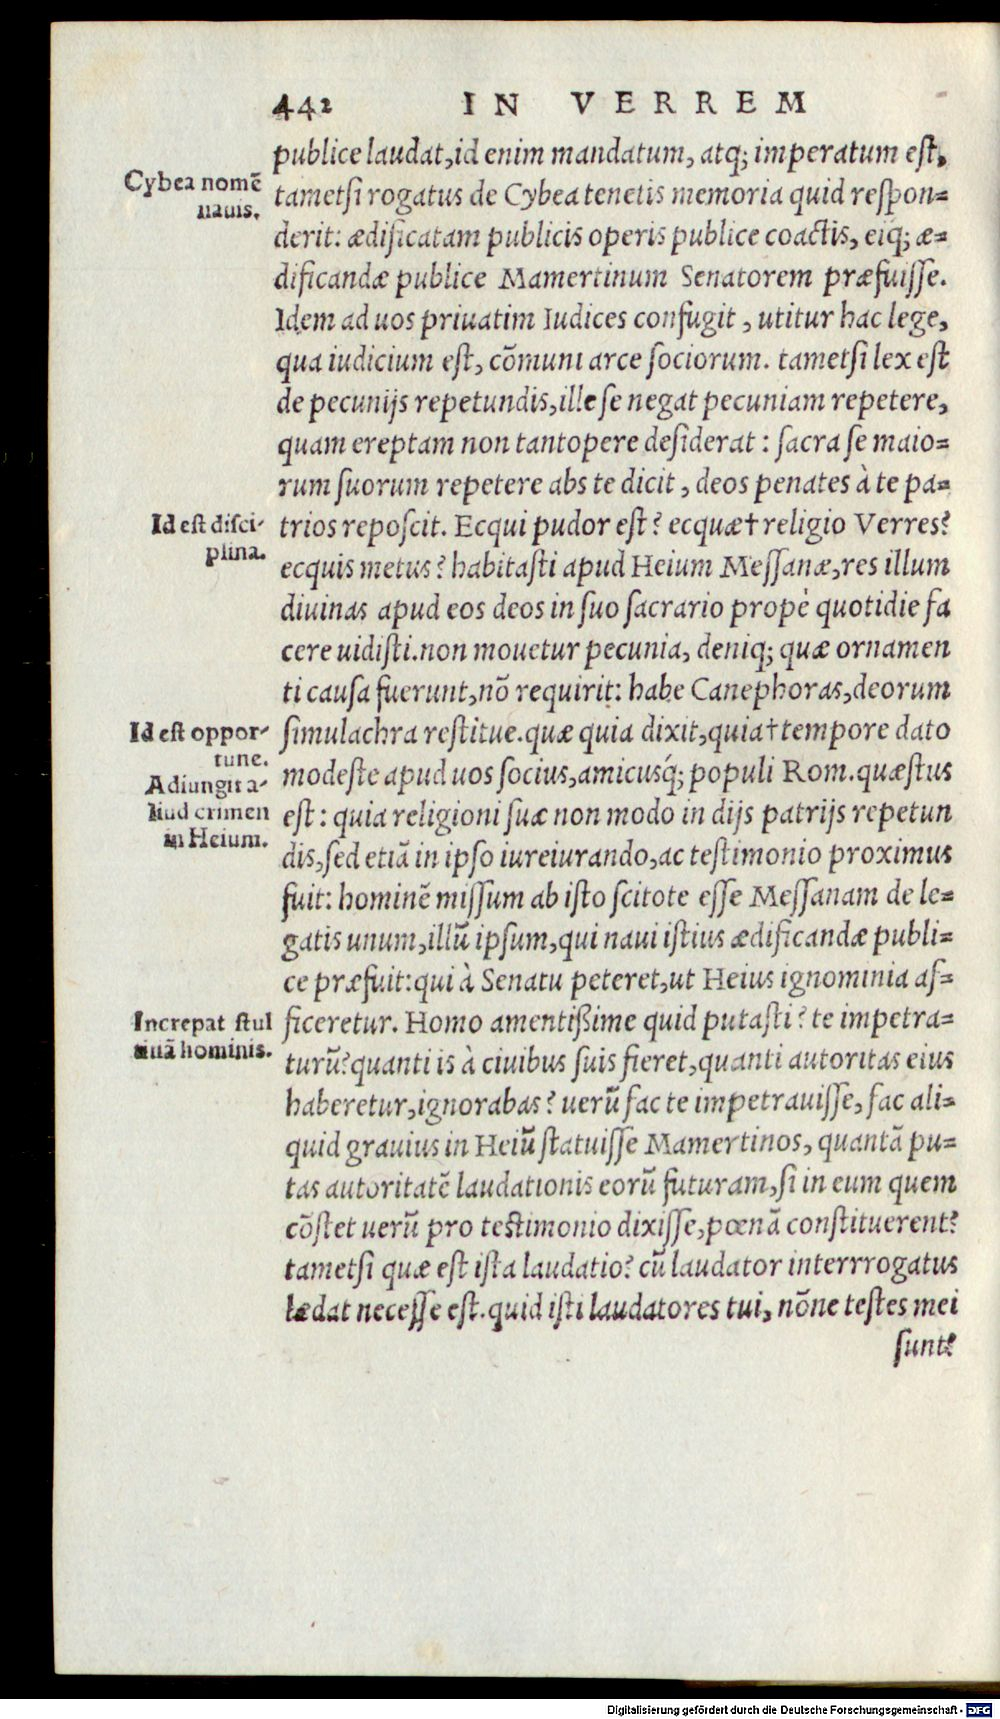 442 IN VERREM
publice laudat, id enim mandatum, atq; imperatum est,
Cybea nomẽ
nauis.
tametsi rogatus de Cybea tenetis memoria quid respon=
derit: ædificatam publicis operis publice coactis, eiq́; æ=
dificandæ publice Mamertinum Senatorem præfuisse.
Idem ad uos priuatim Iudices confugit, utitur hac lege,
qua iudicium est, cõmuni arce sociorum. tametsi lex est
de pecunijs repetundis, ille se negat pecuniam repetere,
quam ereptam non tantopere desiderat: sacra se maio=
rum suorum repetere abs te dicit, deos penates à te pa=
Id est disci-
plina.
trios reposcit. Ecqui pudor est? ecquæ† religio Verres?
ecquis metus? habitasti apud Heium Messanæ, res illum
diuinas apud eos deos in suo sacrario propè quotidie fa
cere uidisti. non mouetur pecunia, deniq; quæ ornamen
ti causa fuerunt, nõ requirit: habe Canephoras, deorum
Id est oppor-
tune.
Adiungit a-
liud crimen
in Heium.
simulachra restitue. quæ quia dixit, quia† tempore dato
modeste apud uos socius, amicusq́; populi Rom. quæstus
est: quia religioni suæ non modo in dijs patrijs repetun
dis, sed etiã in ipso iureiurando, ac testimonio proximus
fuit: hominẽ missum ab isto scitote esse Messanam de le=
gatis unum, illũ ipsum, qui naui istius ædificandæ publi=
ce præfuit: qui à Senatu peteret, ut Heius ignominia af=
Increpat stul
titiã hominis.
ficeretur. Homo amentißime quid putasti? te impetra=
turũ? quanti is à ciuibus suis fieret, quanti autoritas eius
haberetur, ignorabas? uerũ fac te impetrauisse, fac ali=
quid grauius in Heiũ statuisse Mamertinos, quantã pu=
tas autoritatẽ laudationis eorũ futuram, si in eum quem
cõstet uerũ pro testimonio dixisse, pœnã constituerent?
tametsi quæ est ista laudatio? cũ laudator interrrogatus
lædat necesse est. quid isti laudatores tui, nõne testes mei
sunt?
Digitalisierung gefördert durch die Deutsche Forschungsgemeinschaft - DFG